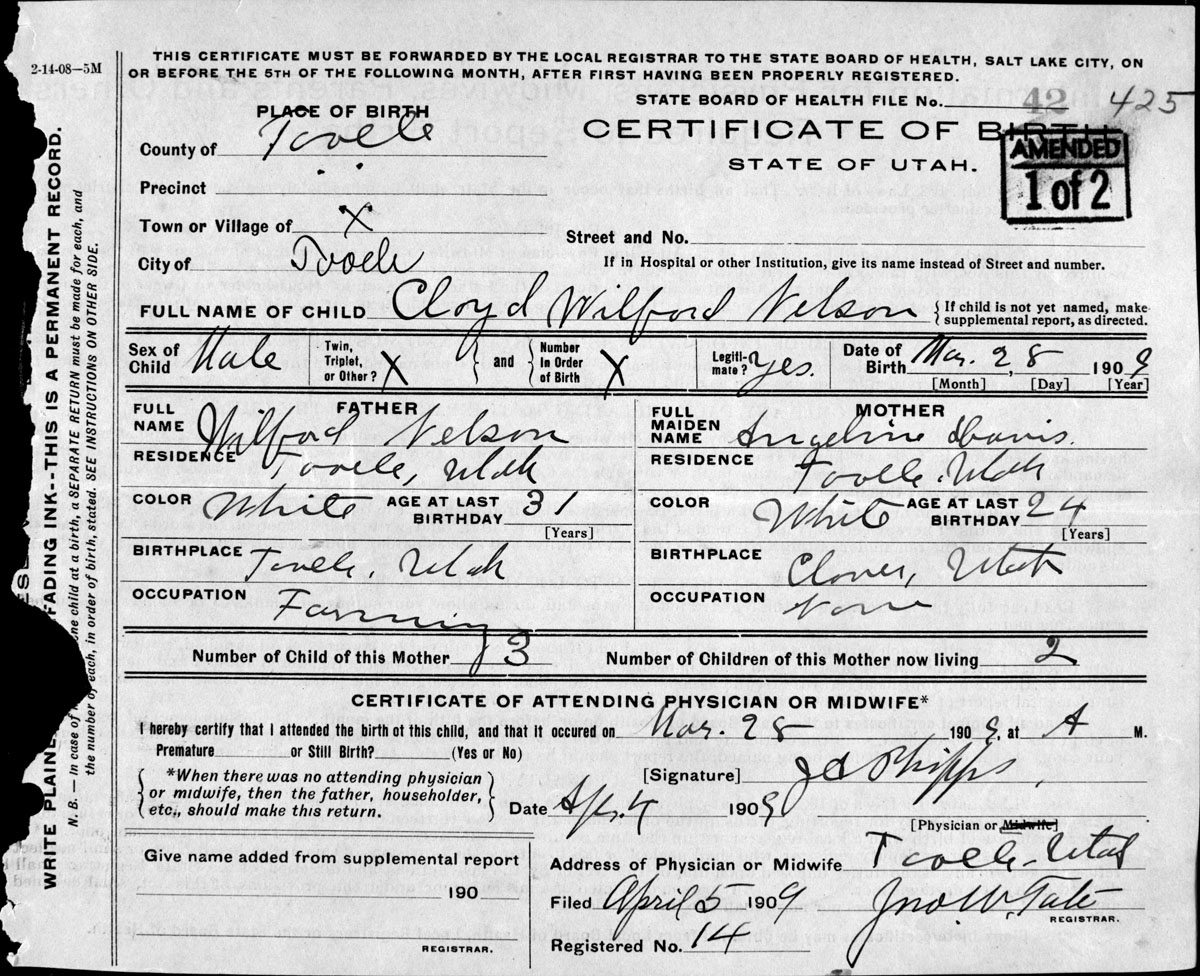 2-14-08—5M
THIS CERTIFICATE MUST BE FORWARDED BY THE LOCAL REGISTRAR TO THE STATE BOARD OF HEALTH, SALT LAKE CITY, ON
OR BEFORE THE 5TH OF THE FOLLOWING MONTH, AFTER FIRST HAVING BEEN PROPERLY REGISTERED.
STATE BOARD OF HEALTH FILE No. 42 425
PLACE OF BIRTH
CERTIFICATE OF BIRTH
County of Tooele
STATE OF UTAH.
AMENDED
1 of 2
Precinct
Town or Village of X
Street and No.
City of Tooele
If in Hospital or other Institution, give its name instead of Street and number.
FULL NAME OF CHILD Cloyd Wilford Nelson { If child is not yet named, make
supplemental report, as directed.
Sex of Child Male Twin, Triplet, or Other? X } and { Number In Order of Birth X Legiti-mate? yes. Date of Birth Mar. 28, 1909
[Month] [Day] [Year]
FATHER MOTHER
FULL NAME Wilford Nelson FULL MAIDEN NAME Angeline Davis.
RESIDENCE Tooele, Utah RESIDENCE Tooele, Utah
COLOR White AGE AT LAST BIRTHDAY 31 COLOR White AGE AT LAST BIRTHDAY 24
[Years] [Years]
BIRTHPLACE Tooele, Utah BIRTHPLACE Clover, Utah
OCCUPATION Farming OCCUPATION None
Number of Child of this Mother 3 Number of Children of this Mother now living 2
CERTIFICATE OF ATTENDING PHYSICIAN OR MIDWIFE*
I hereby certify that I attended the birth of this child, and that it occured on Mar. 28 1909, at A M.
Premature or Still Birth? (Yes or No)
{ *When there was no attending physician
or midwife, then the father, householder,
etc., should make this return. }
[Signature] J A Phipps
Date Apr. 4 1909
[Physician or Midwife]
Give name added from supplemental report
190
REGISTRAR.
Address of Physician or Midwife Tooele Utah
Filed April 5 1909 Jno. W. Tate
REGISTRAR.
Registered No. 14
WRITE PLAINL FADING INK--THIS IS A PERMANENT RECORD.
N. B.—In case of one child at a birth, a SEPARATE RETURN must be made for each, and
the number of each, in order of birth, stated. SEE INSTRUCTIONS ON OTHER SIDE.